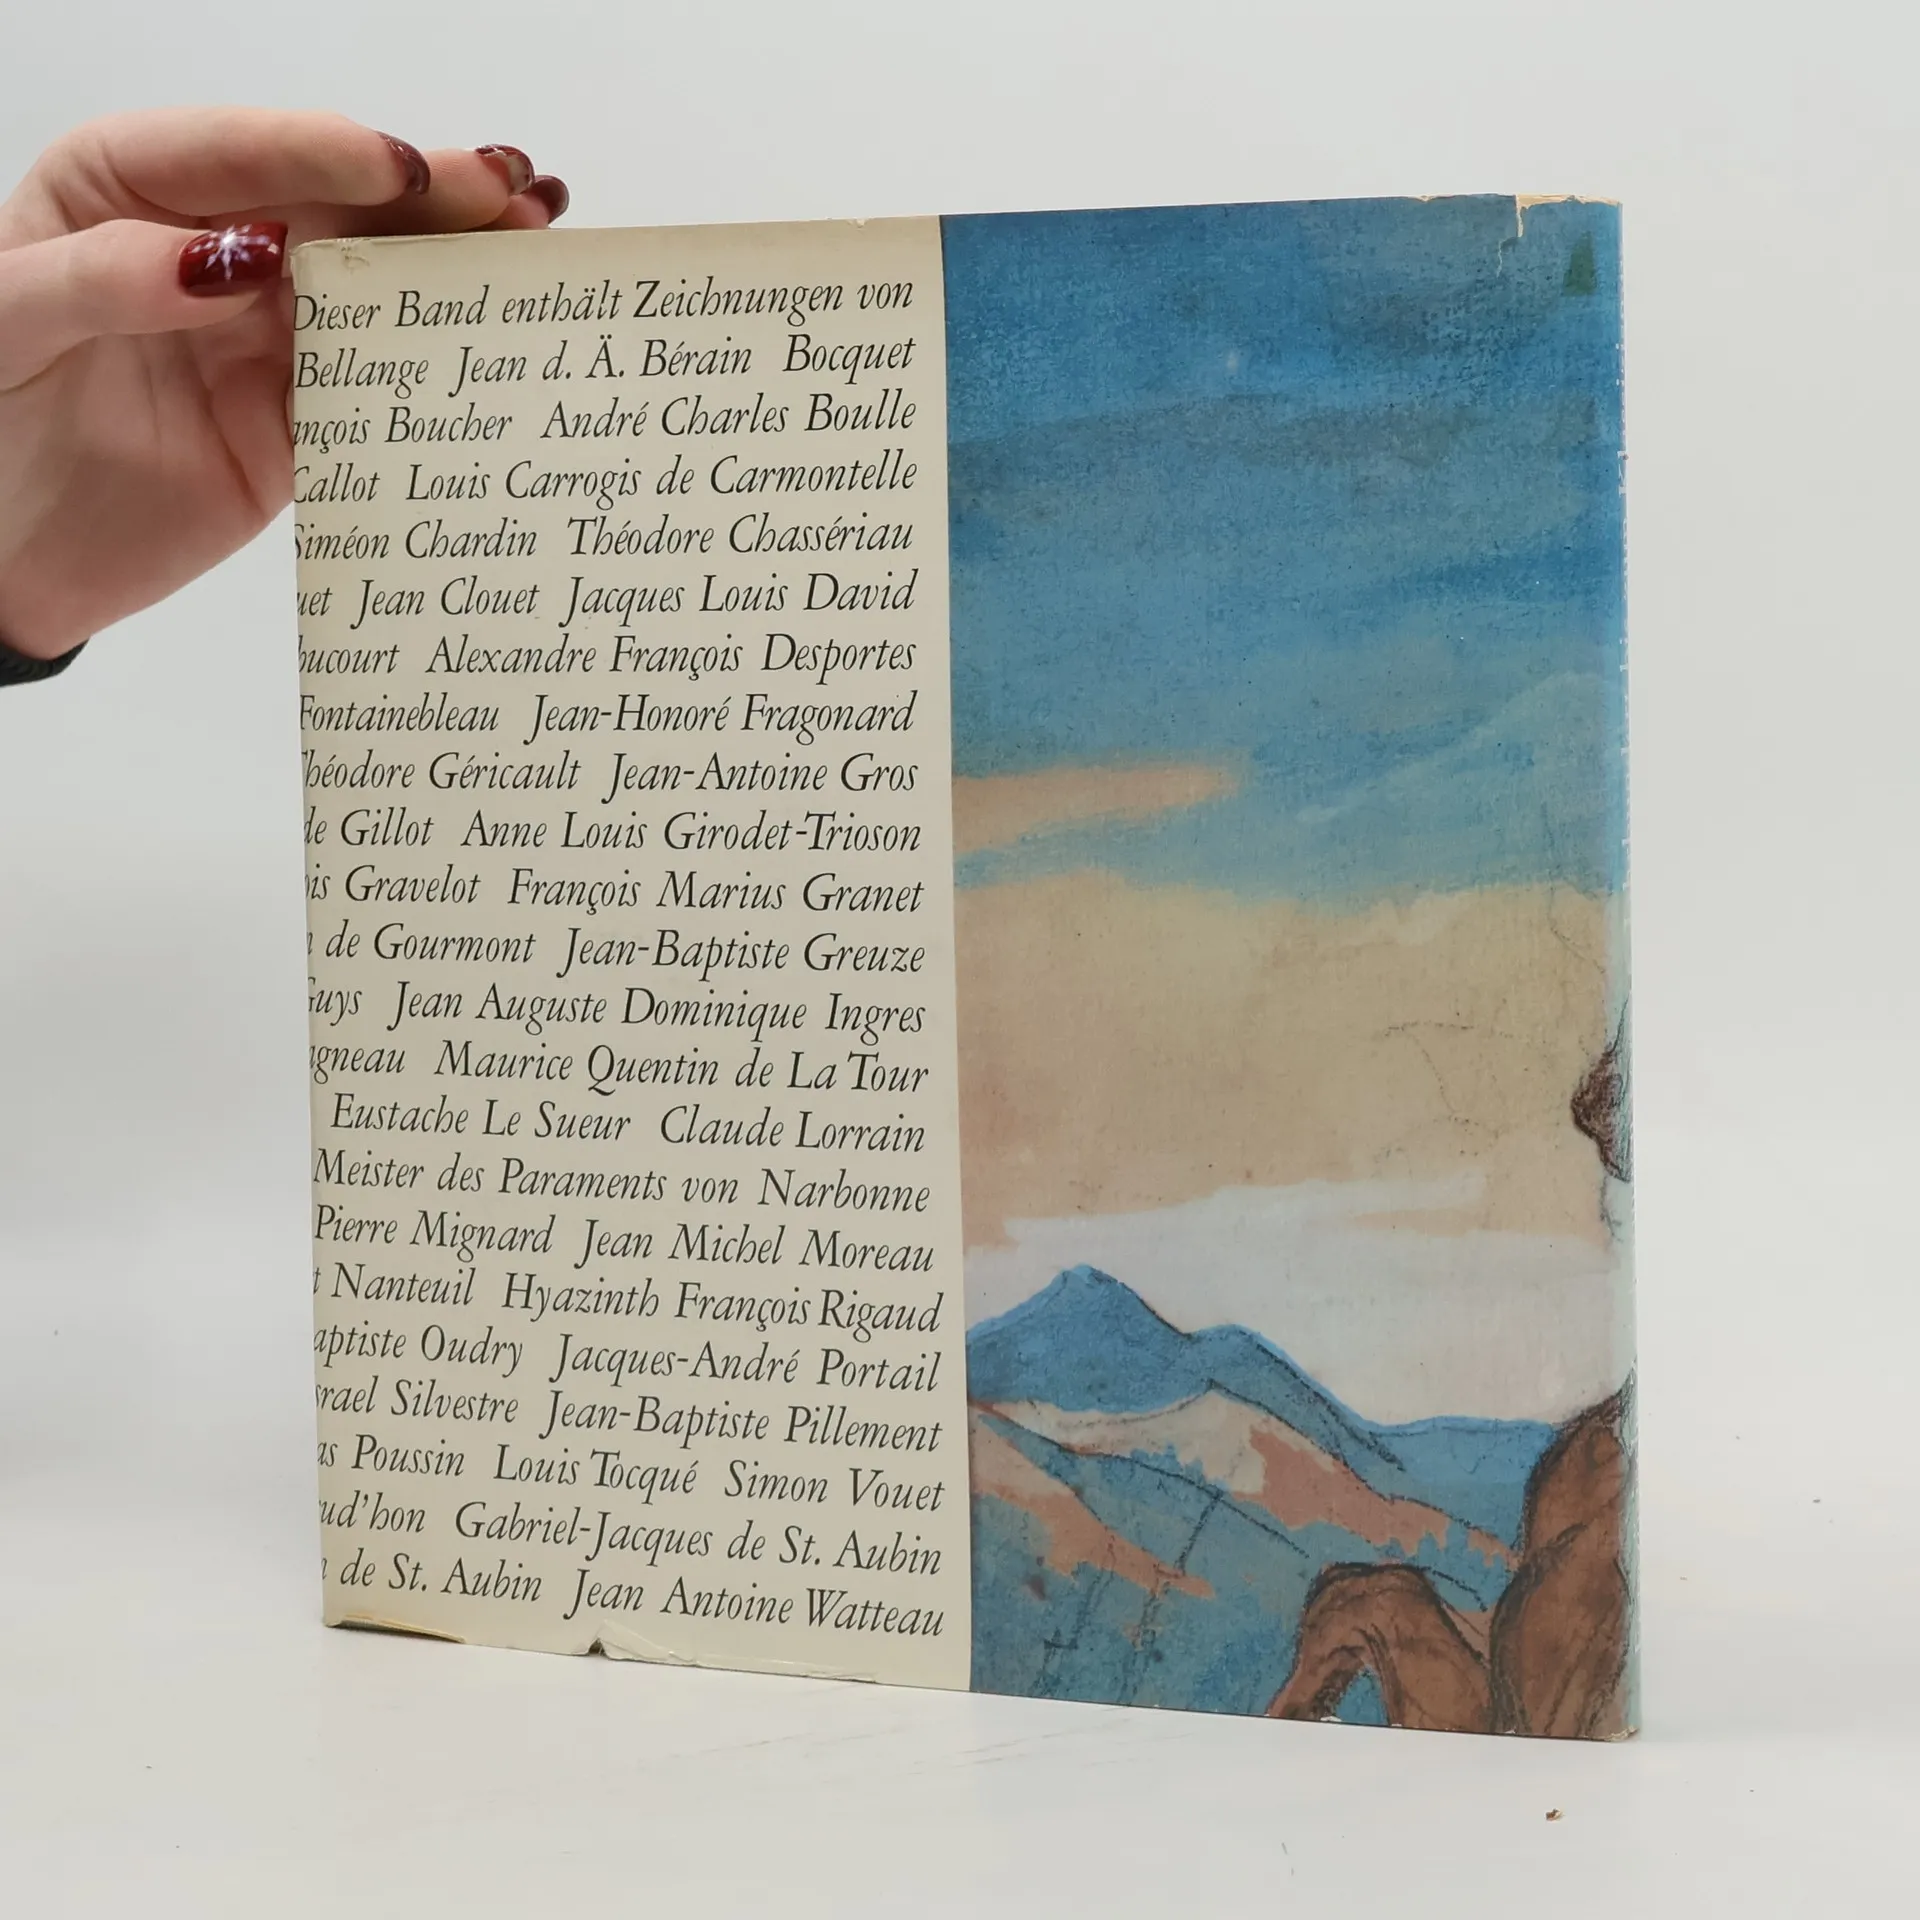 Dieser Band enthält Zeichnungen von
Bellange Jean d. Ä. Bérain Bocquet
ançois Boucher André Charles Boulle
Callot Louis Carrogis de Carmontelle
Siméon Chardin Théodore Chassériau
uet Jean Clouet Jacques Louis David
bucourt Alexandre François Desportes
Fontainebleau Jean-Honoré Fragonard
Théodore Géricault Jean-Antoine Gros
de Gillot Anne Louis Girodet-Trioson
ois Gravelot François Marius Granet
n de Gourmont Jean-Baptiste Greuze
Guys Jean Auguste Dominique Ingres
agneau Maurice Quentin de La Tour
Eustache Le Sueur Claude Lorrain
Meister des Paraments von Narbonne
Pierre Mignard Jean Michel Moreau
t Nanteuil Hyazinth François Rigaud
aptiste Oudry Jacques-André Portail
srael Silvestre Jean-Baptiste Pillement
as Poussin Louis Tocqué Simon Vouet
rud'hon Gabriel-Jacques de St. Aubin
n de St. Aubin Jean Antoine Watteau